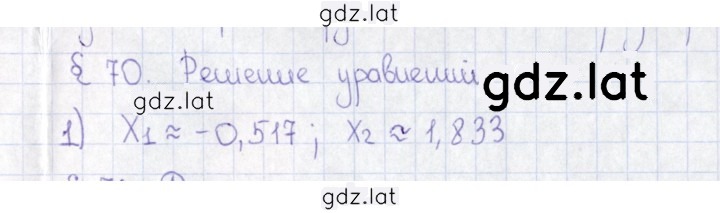 gdz.lat
§ 70. Решение уравнений
gdz.lat
gdz.lat
1) x₁ ≈ -0,517; x₂ ≈ 1,833
gdz.lat